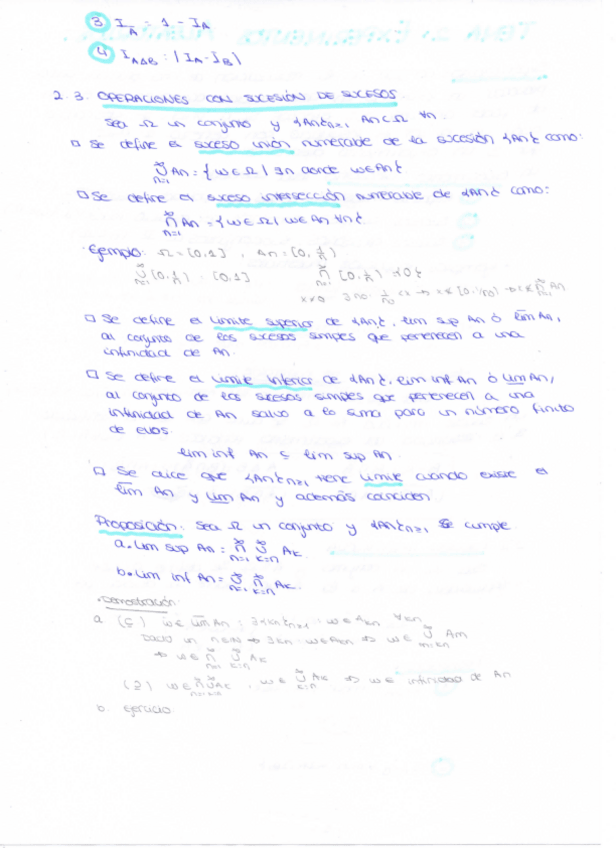 ③ I_Ā = 1 - I_A
④ I_AΔB : |I_A - I_B|
2.3. OPERACIONES CON SUCESIÓN DE SUCESOS
Sea Ω un conjunto y {An}n≥1, An⊂Ω ∀n.
□ Se define el suceso unión numerable de la sucesión {An} como:
∞∪n=1 An = {w∈Ω | ∃n donde w∈An}
□ Se define el suceso intersección numerable de {An} como:
∞∩n=1 An = {w∈Ω | w∈An ∀n}
Ejemplo: Ω = [0,1], An = [0, 1/n)
∞∪n=1 [0, 1/n) = [0,1] ∞∩n=1 [0, 1/n) {0}
x≠0 ∃n0 1/n0 < x → x∉[0, 1/n0) → x∉∞∩n=1 An
□ Se define el límite superior de {An}, lim sup An ó l̅i̅m̅ An,
al conjunto de los sucesos simples que pertenecen a una
infinidad de An.
□ Se define el límite inferior de {An}, lim inf An ó l̲i̲m̲ An,
al conjunto de los sucesos simples que pertenecen a una
infinidad de An salvo a lo sumo para un número finito
de ellos.
lim inf An ⊆ lim sup An.
□ Se dice que {An}n≥1 tiene límite cuando existe el
l̅i̅m̅ An y l̲i̲m̲ An y además coinciden
Proposición: Sea Ω un conjunto y {An}n≥1 se cumple
a. lim sup An = ∞∩n=1 ∞∪k=n Ak.
b. lim inf An = ∞∪n=1 ∞∩k=n Ak.
Demostración:
a. (⊆) w∈ l̅i̅m̅ An : ∃{kn}n≥1 : w∈Akn ∀kn
Dado un n∈ℕ → ∃kn w∈Akn ⇒ w∈ ∞∪ Am
→ w∈ ∞∩n=1 ∞∪k=n Ak
(⊇) w∈ ∞∩n=1 ∞∪k=n Ak, w∈ ∞∪k=n Ak ⇒ w∈ infinidad de An
b. Ejercicio.